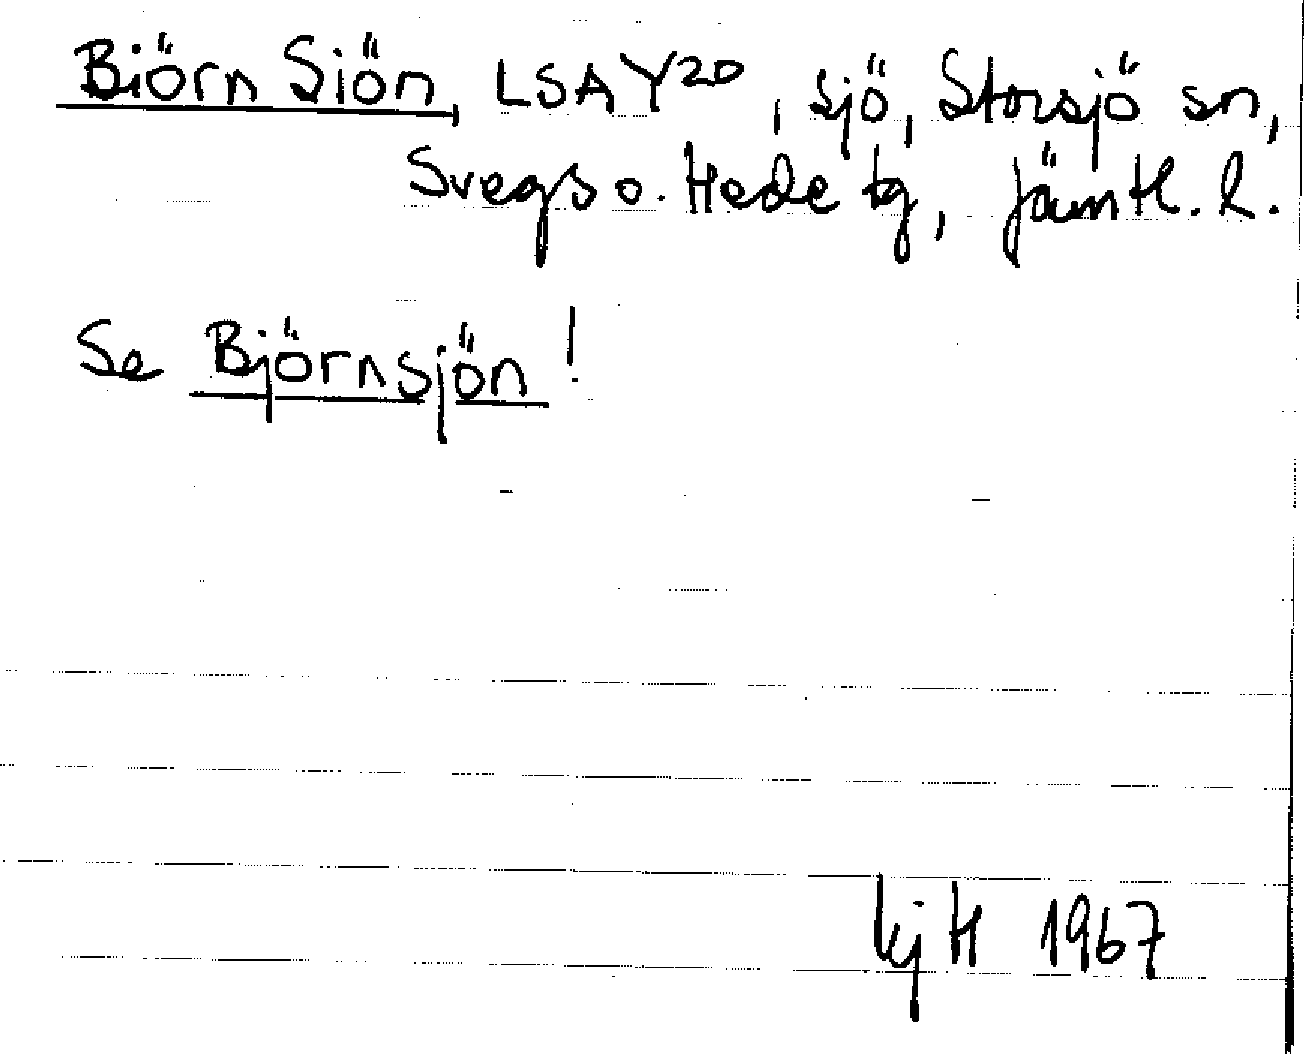 Biörn Siön, LSA Y20, sjö, Storsjö sn,
Svegs o. Hede tg, Jämtl. l.
Se Björnsjön!
kj H 1967